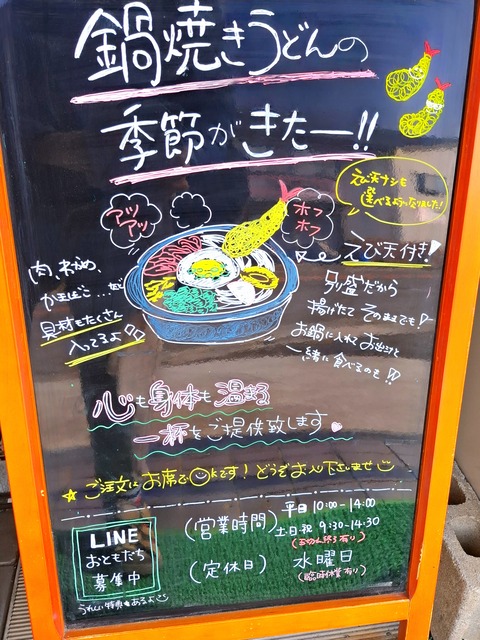 鍋焼きうどんの
季節がきたー!!
えび天ナシも
選べるようになりました!
アツ
アツ
ホフ
ホフ
えび天付き!
肉、わかめ、
かまぼこ...など
具材もたくさん
入ってるよ♪
別盛だから
揚げたてそのままでも!
お鍋に入れてお出汁と
一緒に食べるのも!!
心も身体も温まる
一杯をご提供致します♥
☆ご注文はお席でOKです!どうぞお入り下さいませ
LINE
おともだち
募集中
うれしい特典もあるよ
(営業時間)
平日 10:00-14:00
土日・祝 9:30-14:30
(定休日)
水曜日
(臨時休業有り)